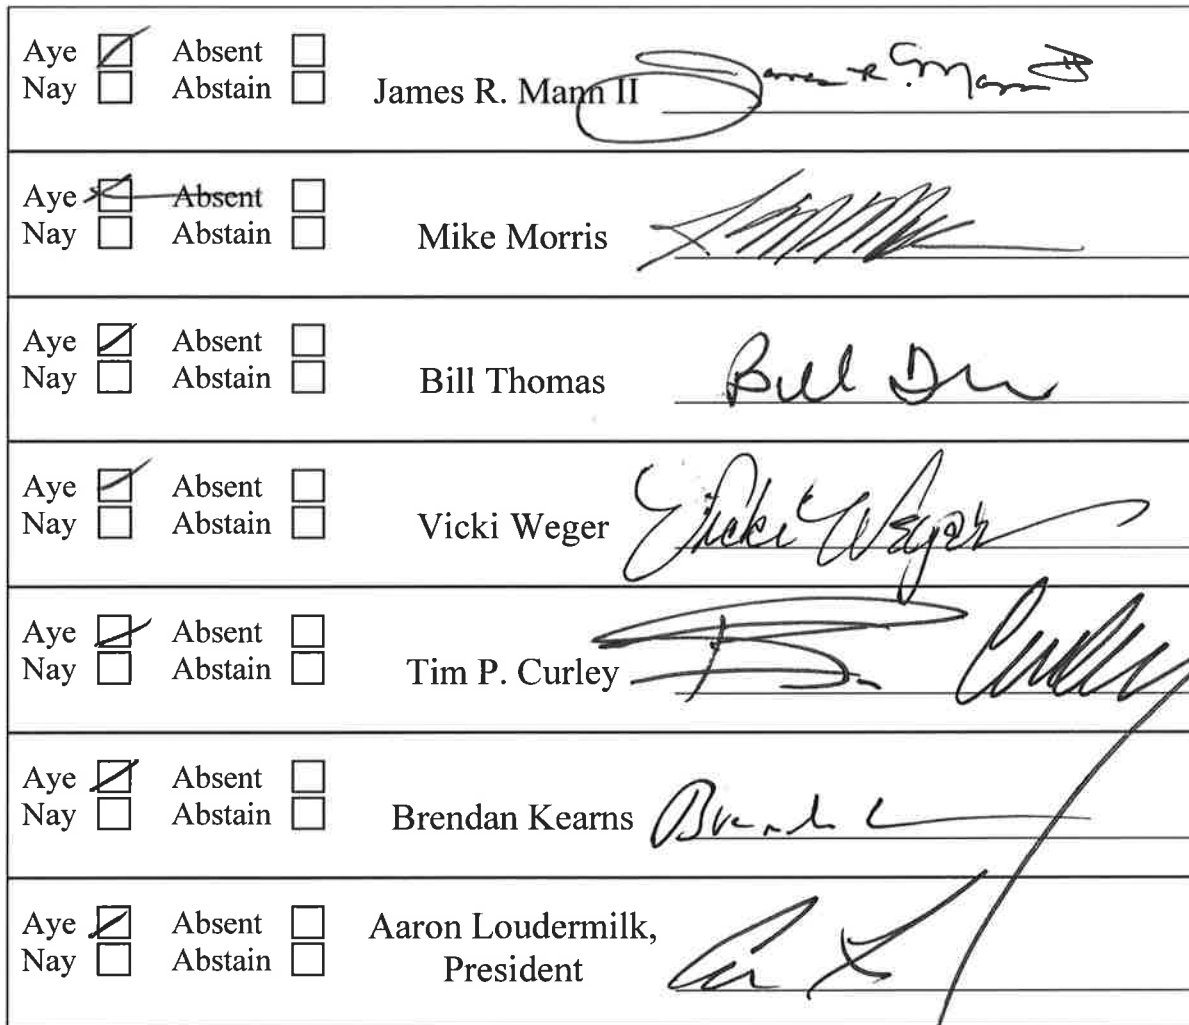 Aye Absent
Nay Abstain James R. Mann II James R. Mann II
Aye Absent
Nay Abstain Mike Morris
Aye Absent
Nay Abstain Bill Thomas Bill
Aye Absent
Nay Abstain Vicki Weger Vicki Weger
Aye Absent
Nay Abstain Tim P. Curley Curley
Aye Absent
Nay Abstain Brendan Kearns
Aye Absent Aaron Loudermilk,
Nay Abstain President